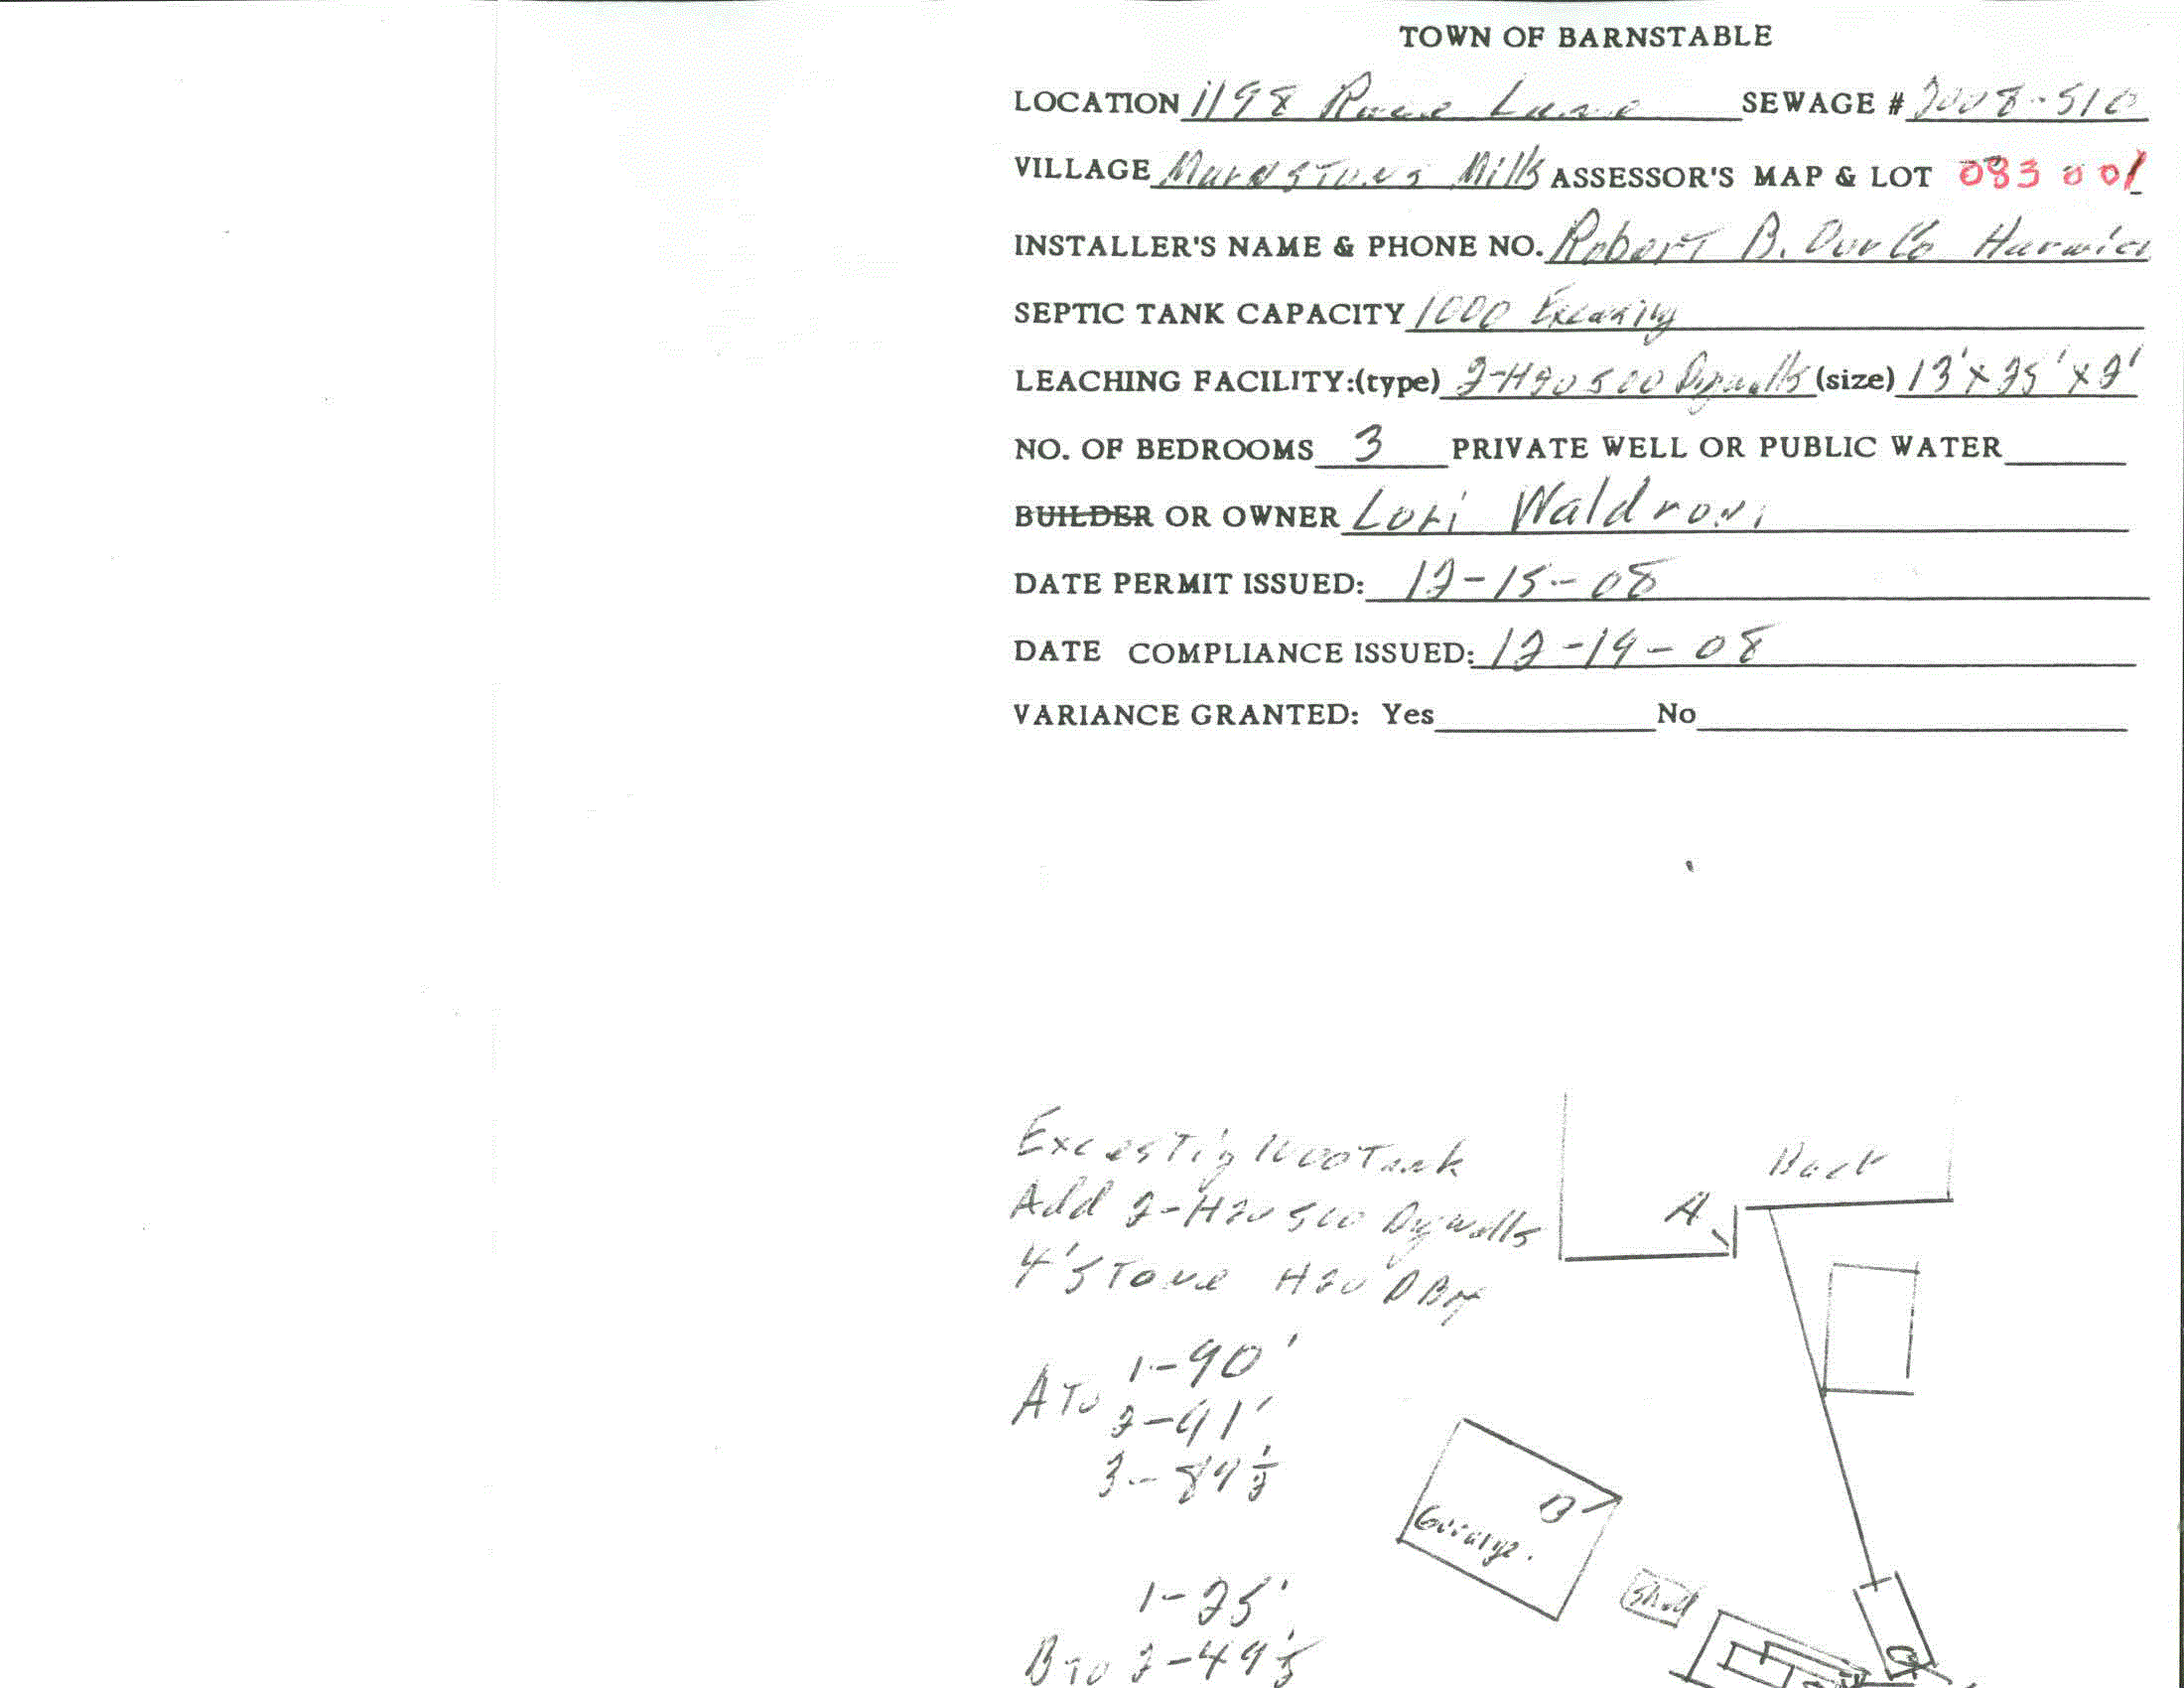 TOWN OF BARNSTABLE
LOCATION 1198 Race Lane SEWAGE # 2008-510
VILLAGE Marstons Mills ASSESSOR'S MAP & LOT 083 001
INSTALLER'S NAME & PHONE NO. Robert B. Our Co Harwich
SEPTIC TANK CAPACITY 1000
LEACHING FACILITY:(type) 2-H20 500 Drywells (size) 13' x 25' x 2'
NO. OF BEDROOMS 3 PRIVATE WELL OR PUBLIC WATER
BUILDER OR OWNER Lori Waldron
DATE PERMIT ISSUED: 12-15-08
DATE COMPLIANCE ISSUED: 12-19-08
VARIANCE GRANTED: Yes No
Excestig 1000 Tank
Back
Add 2-H20 500 Drywells
A
4' Stone H20 D Box
1-90'
A To
2-91'
3-89 1/2
B
Garage.
Shed
1-25'
B To 2-49 1/2